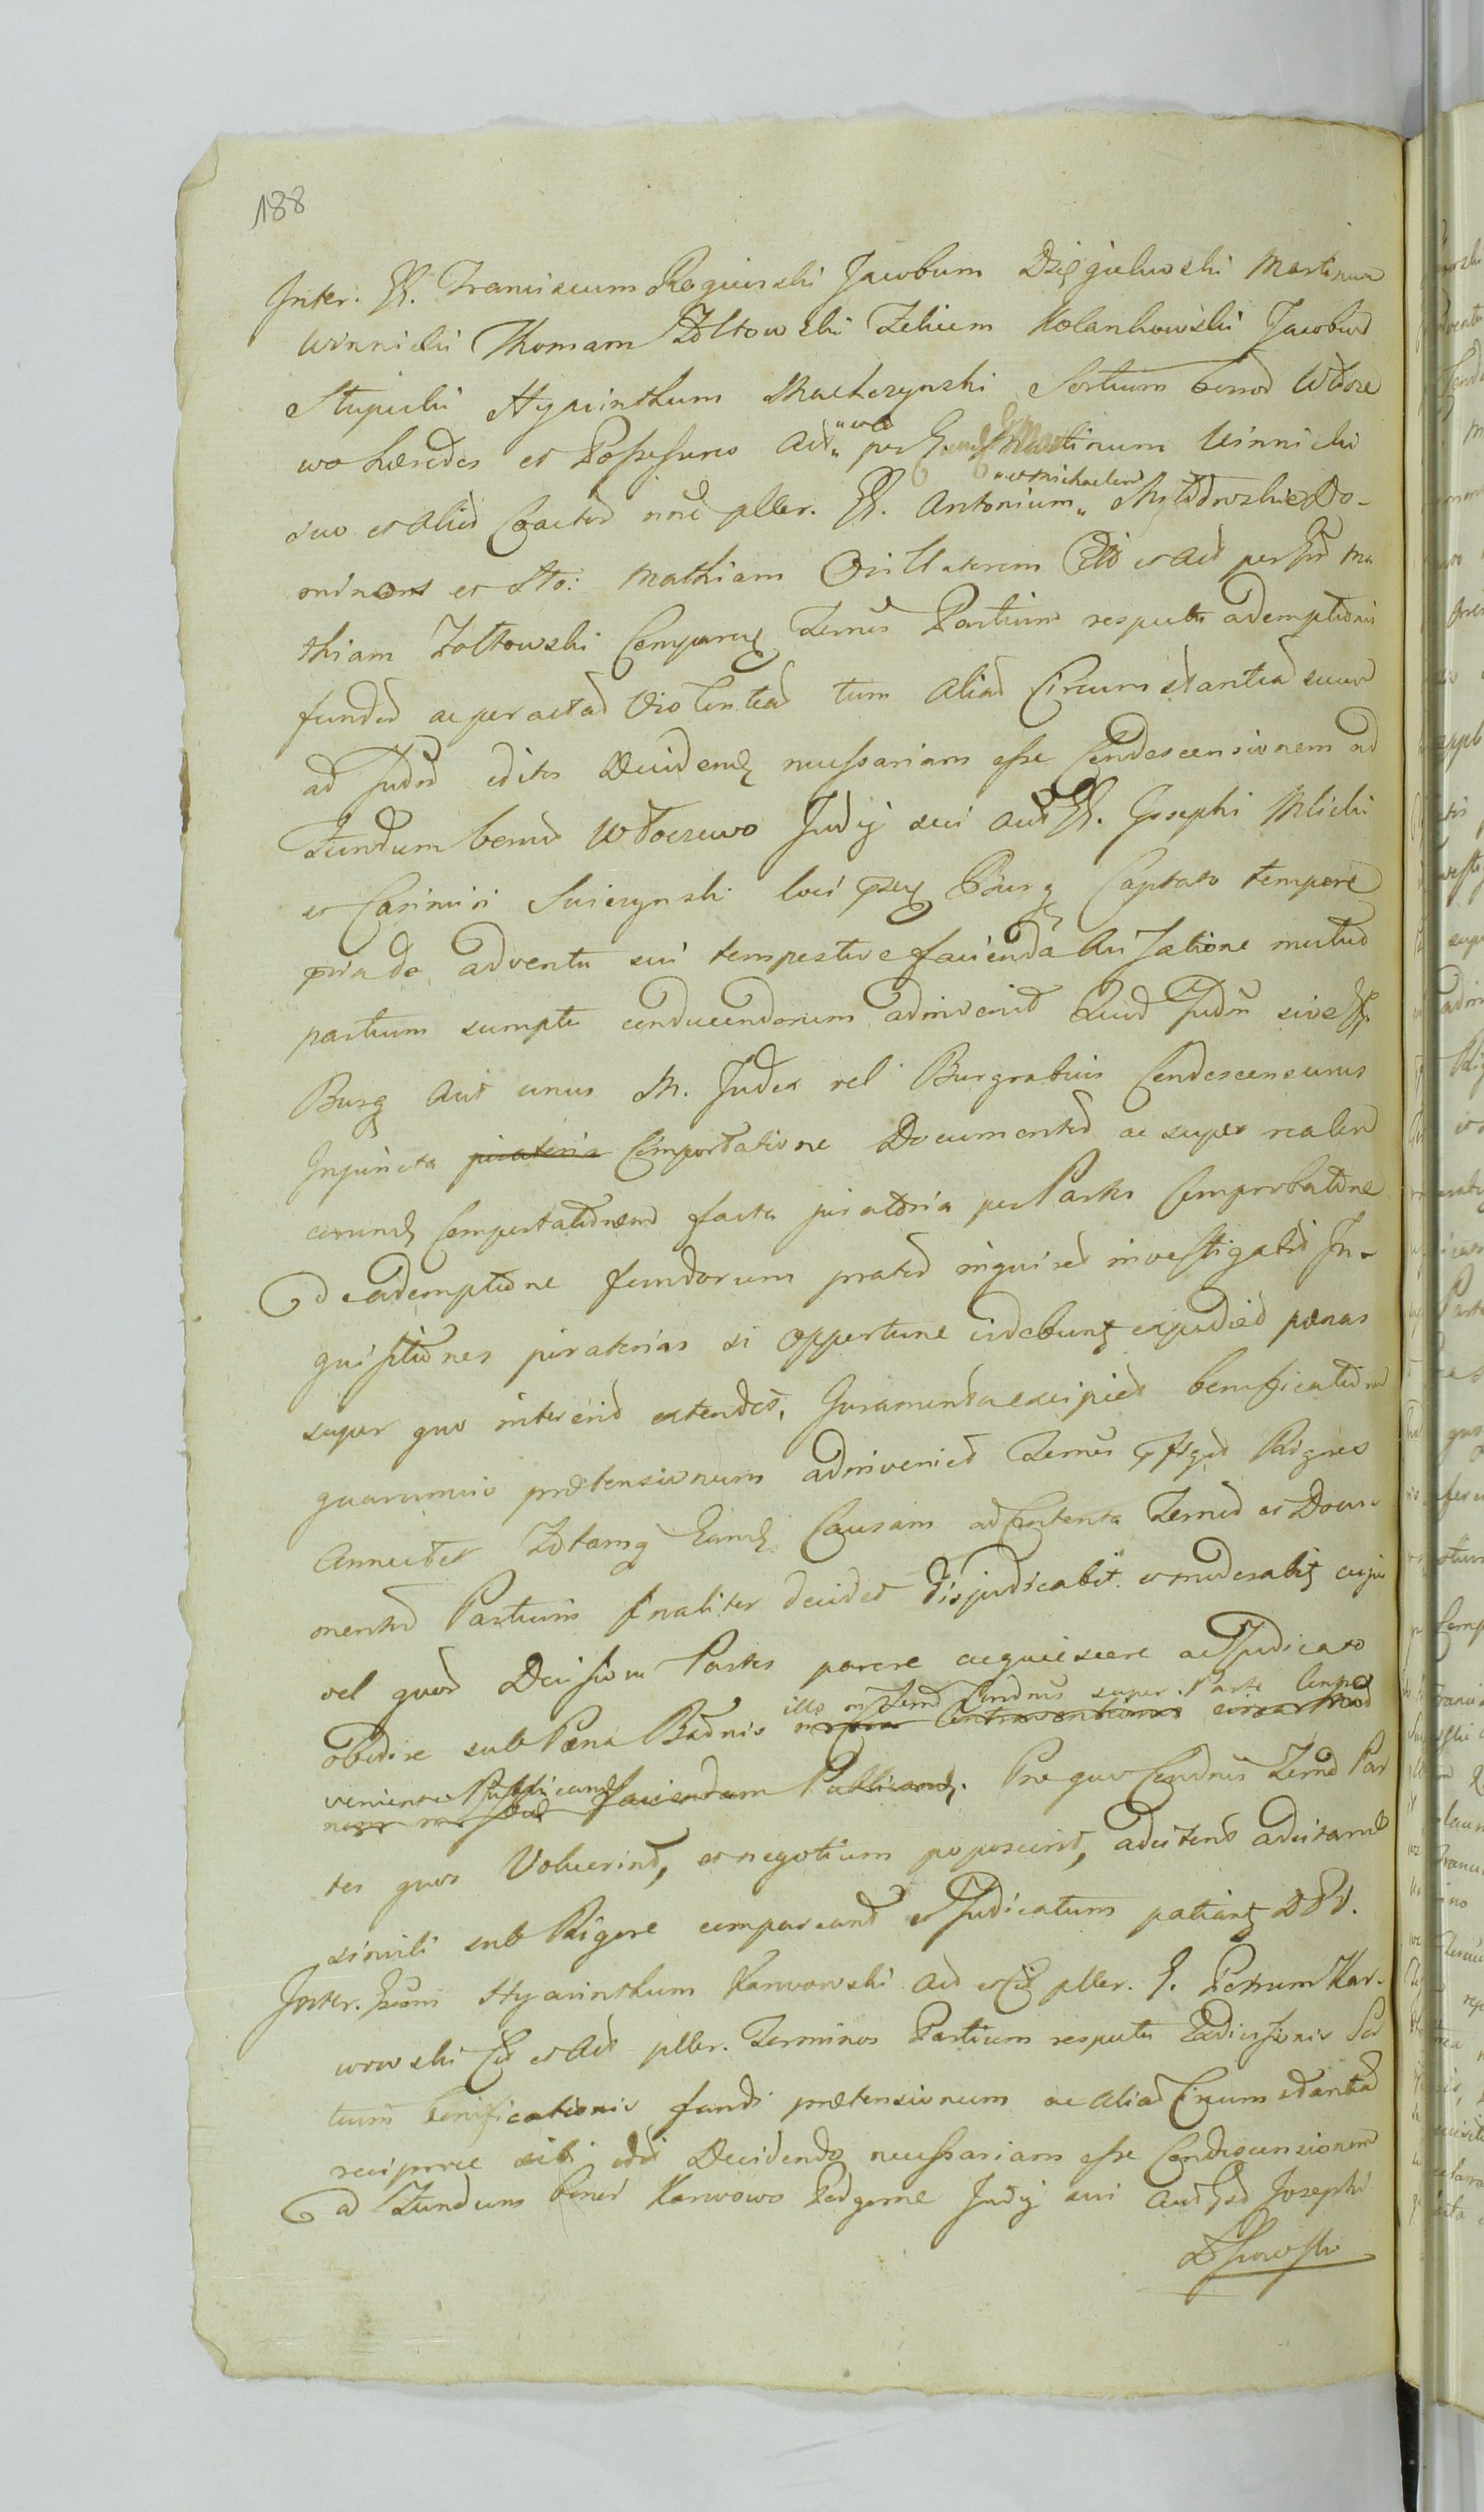 188
Inter. GG. Franciscum Rogienski Jacobum Dzięgielewski Martinum
Winnicki Thomam Zoltowski Felicem Kolankowski Jacobum
Stupicki Hyacinthum Machczynski Sortium bonor Wtocze
wo hæredes et Possessores Act per G. Martinum Winnicki
suo et alior Coactor nne pller. GG. Antonium „et Michaelem„ 
et Sto: Mathiam et act per Ma
thiam Zoltowski Comparen Termis Partium respectu ademptionis
fundor ac peractar Violentiar tum aliar Circumstantiar suar
ad Judm editos Deciden necessariam esse Condescensionem ad
Fundum bonor Wtoczewo Judij sui aut GG. Josephi Mlicki
et Casimiri Swiezynski loci Burg Captato tempore
adventu sui tempestive facienda Avisatione mutuo
partium sumptu conducendorum adinvenit Quod Judm sive
Burg aut unus M. Judex vel Burgrabius Condescensurus
Injuncta juratoria Comportatione Documentor ac super realem
eorund Comportationem facta juratoria per Partes Comprobatione
de ademptione fundorum prator inquiret investigabit In-
quisitiones juratorias si opportune videbunt expediet pænas
super quo intererit extendet, Juramenta excipiet bonificationem
quarumvis prætensionum adinveniet Termis Rigores
Annectet Totamq Eand Causam ad Contenta Termor et Docu
mentor Partium finaliter decidet dijudicabit et moderabit cujus
vel quor Decisioni Partes parere acquiescere ac Judicato
obedire sub Pæna Bannis illo in Termo Condnis super Parte Contra
Contraventionis
veniente Publicand faciendam Publicand. Pro quo Condnis Termo Par
tes quos Voluerint, et negotium poposcerit, adcitent adcitandi
simili sub Rigore compareant et Judicatum patiant DPI.
Inter. Hyacinthum Karwowski Act et Cit pller. G. Petrum Kar-
wowski Cit et Act pller. Terminos Partium respectu Sor
tium bonificationis fundi prætensionum ac aliar Circumstantiar
reciproce sibi Decidendo necessariam esse Condescensionem
ad Fundum bonor Karwowo Podgorne Judij sui aut Josephi